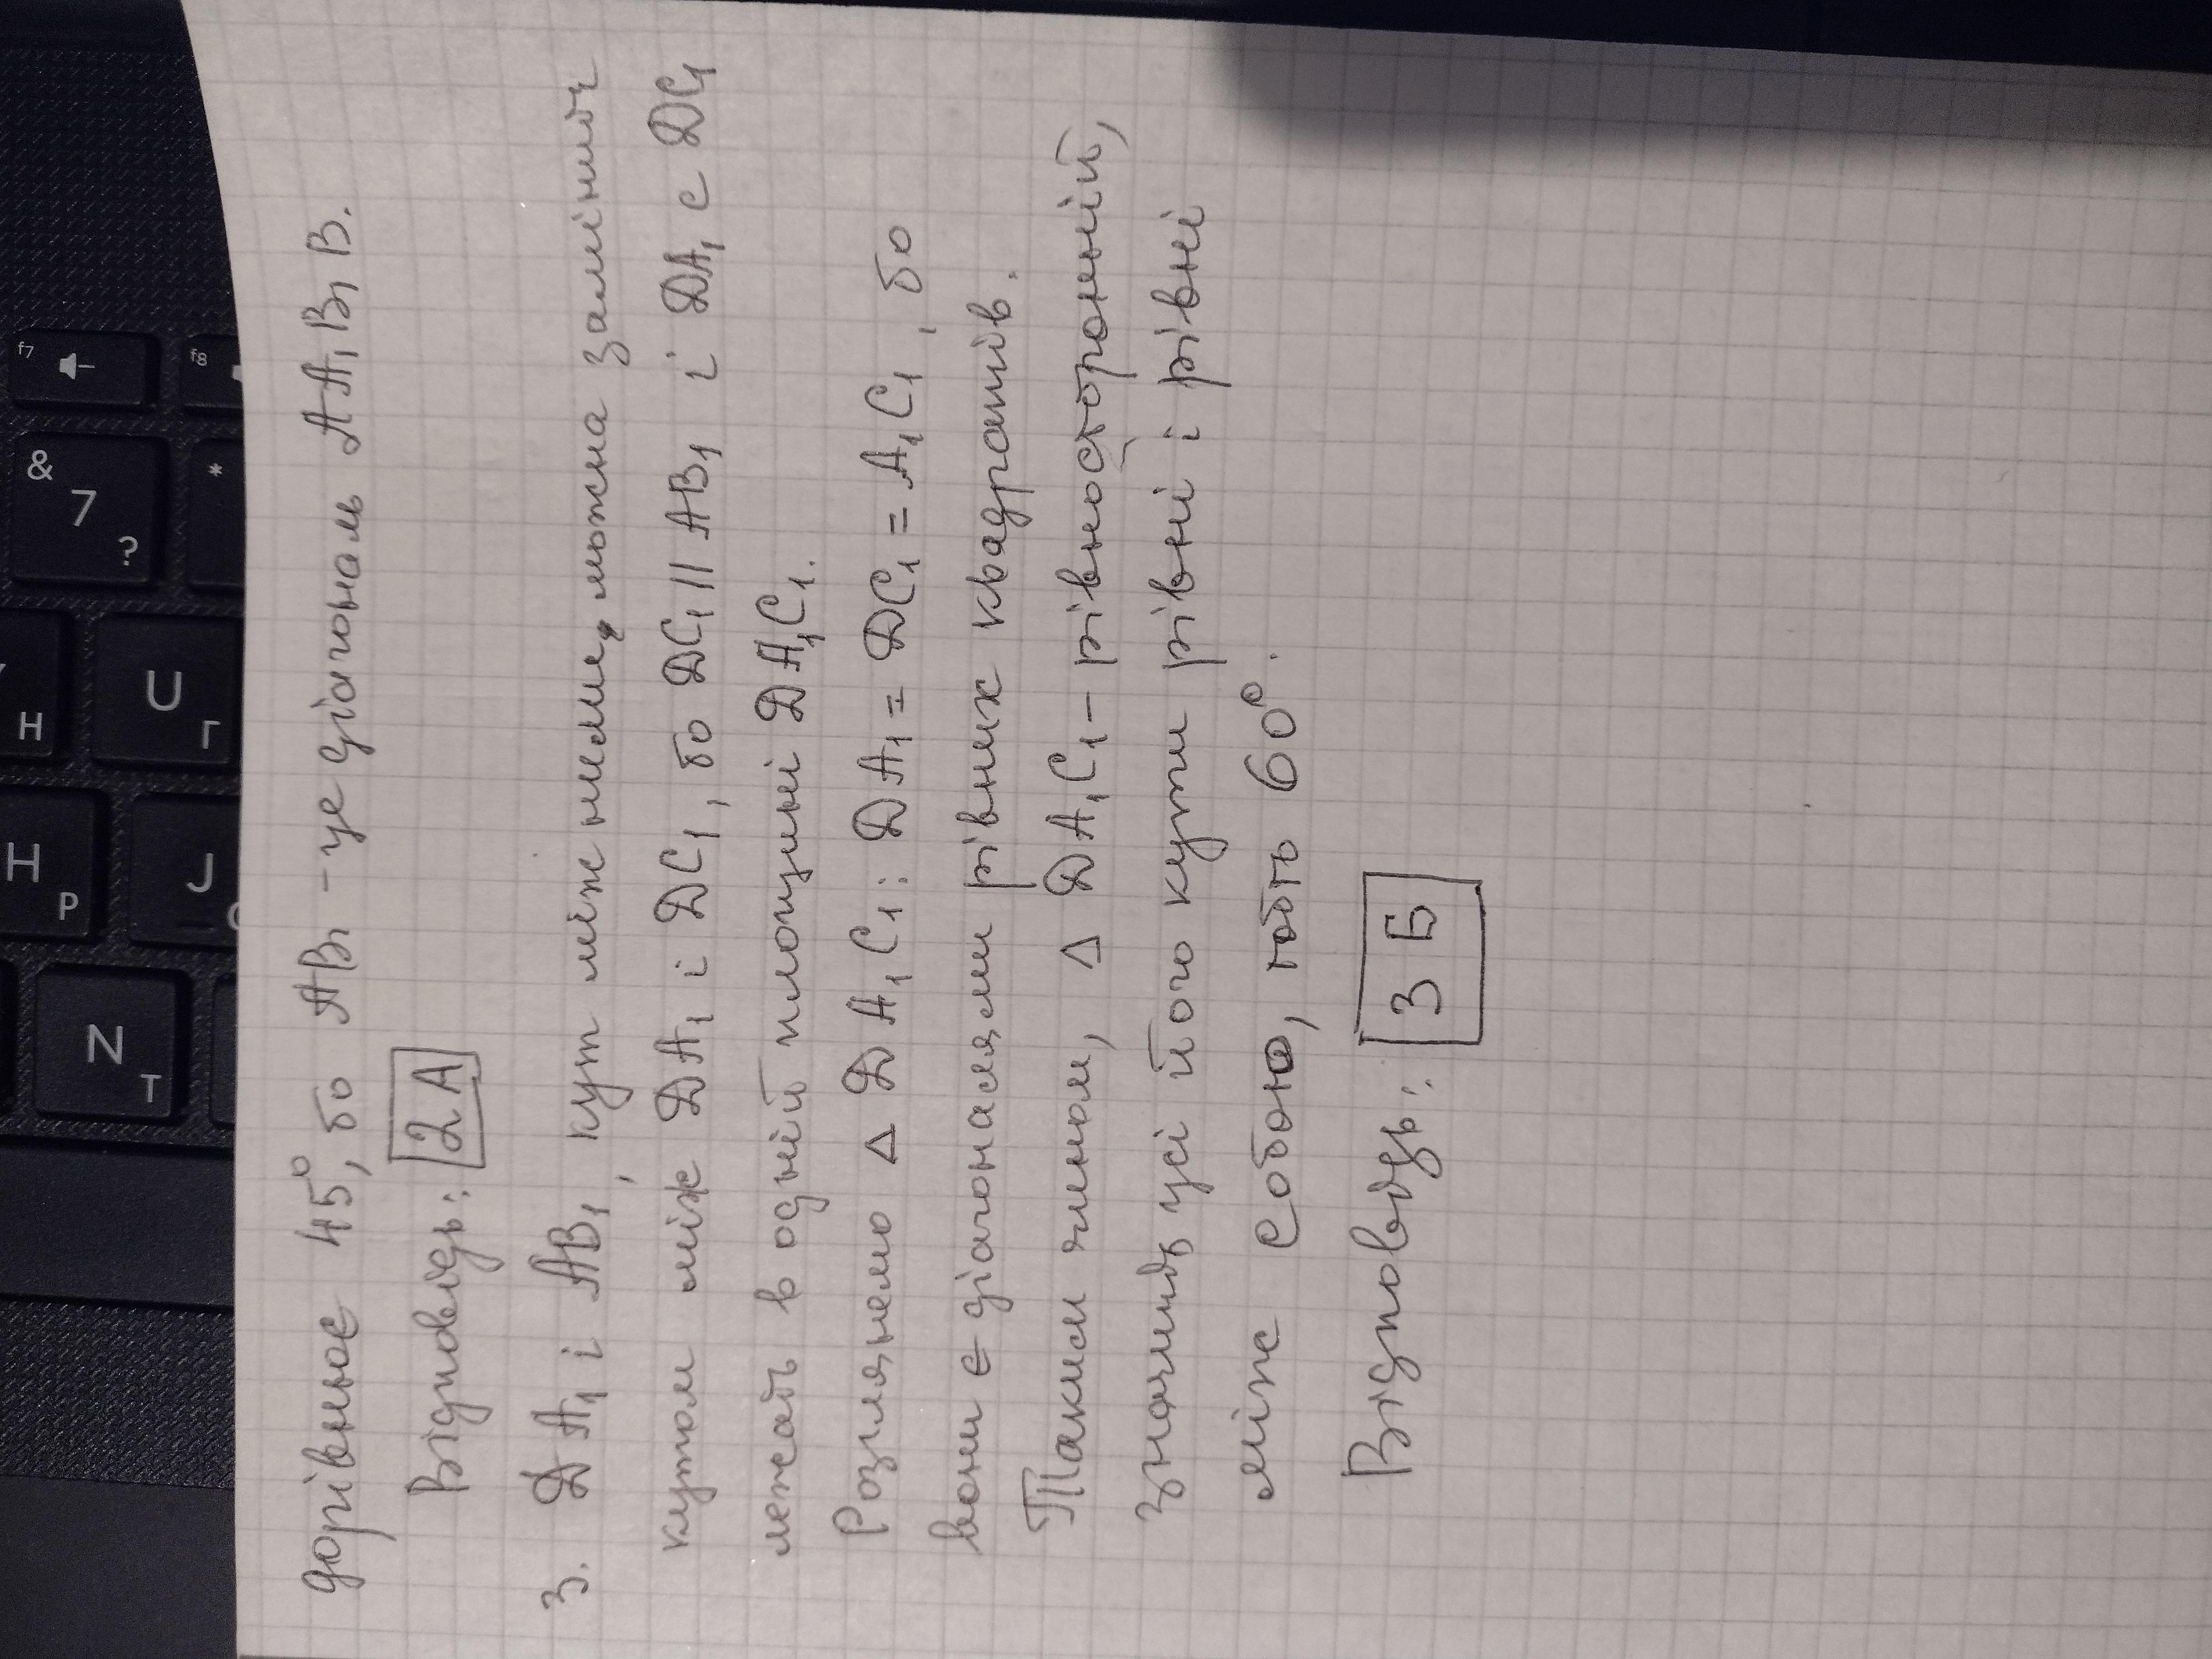 дорівнює 45°, бо AB₁ - це діагональ AA₁B₁B.
Відповідь: 2А
3. DA₁ і AB₁, кут між ними, можна замінить
кутом між DA₁ і DC₁, бо DC₁ || AB₁ і DA₁ є DC₁
лежать в одній площині DA₁C₁.
Розглянемо Δ DA₁C₁: DA₁ = DC₁ = A₁C₁, бо
вони є діагоналями рівних квадратів.
Таким чином, Δ DA₁C₁ - рівносторонній,
значить усі його кути рівні і рівні
між собою, тобто 60°.
Відповідь: 3 Б
f7
f8
&
7
?
*
U
Г
H
H
Р
J
N
Т